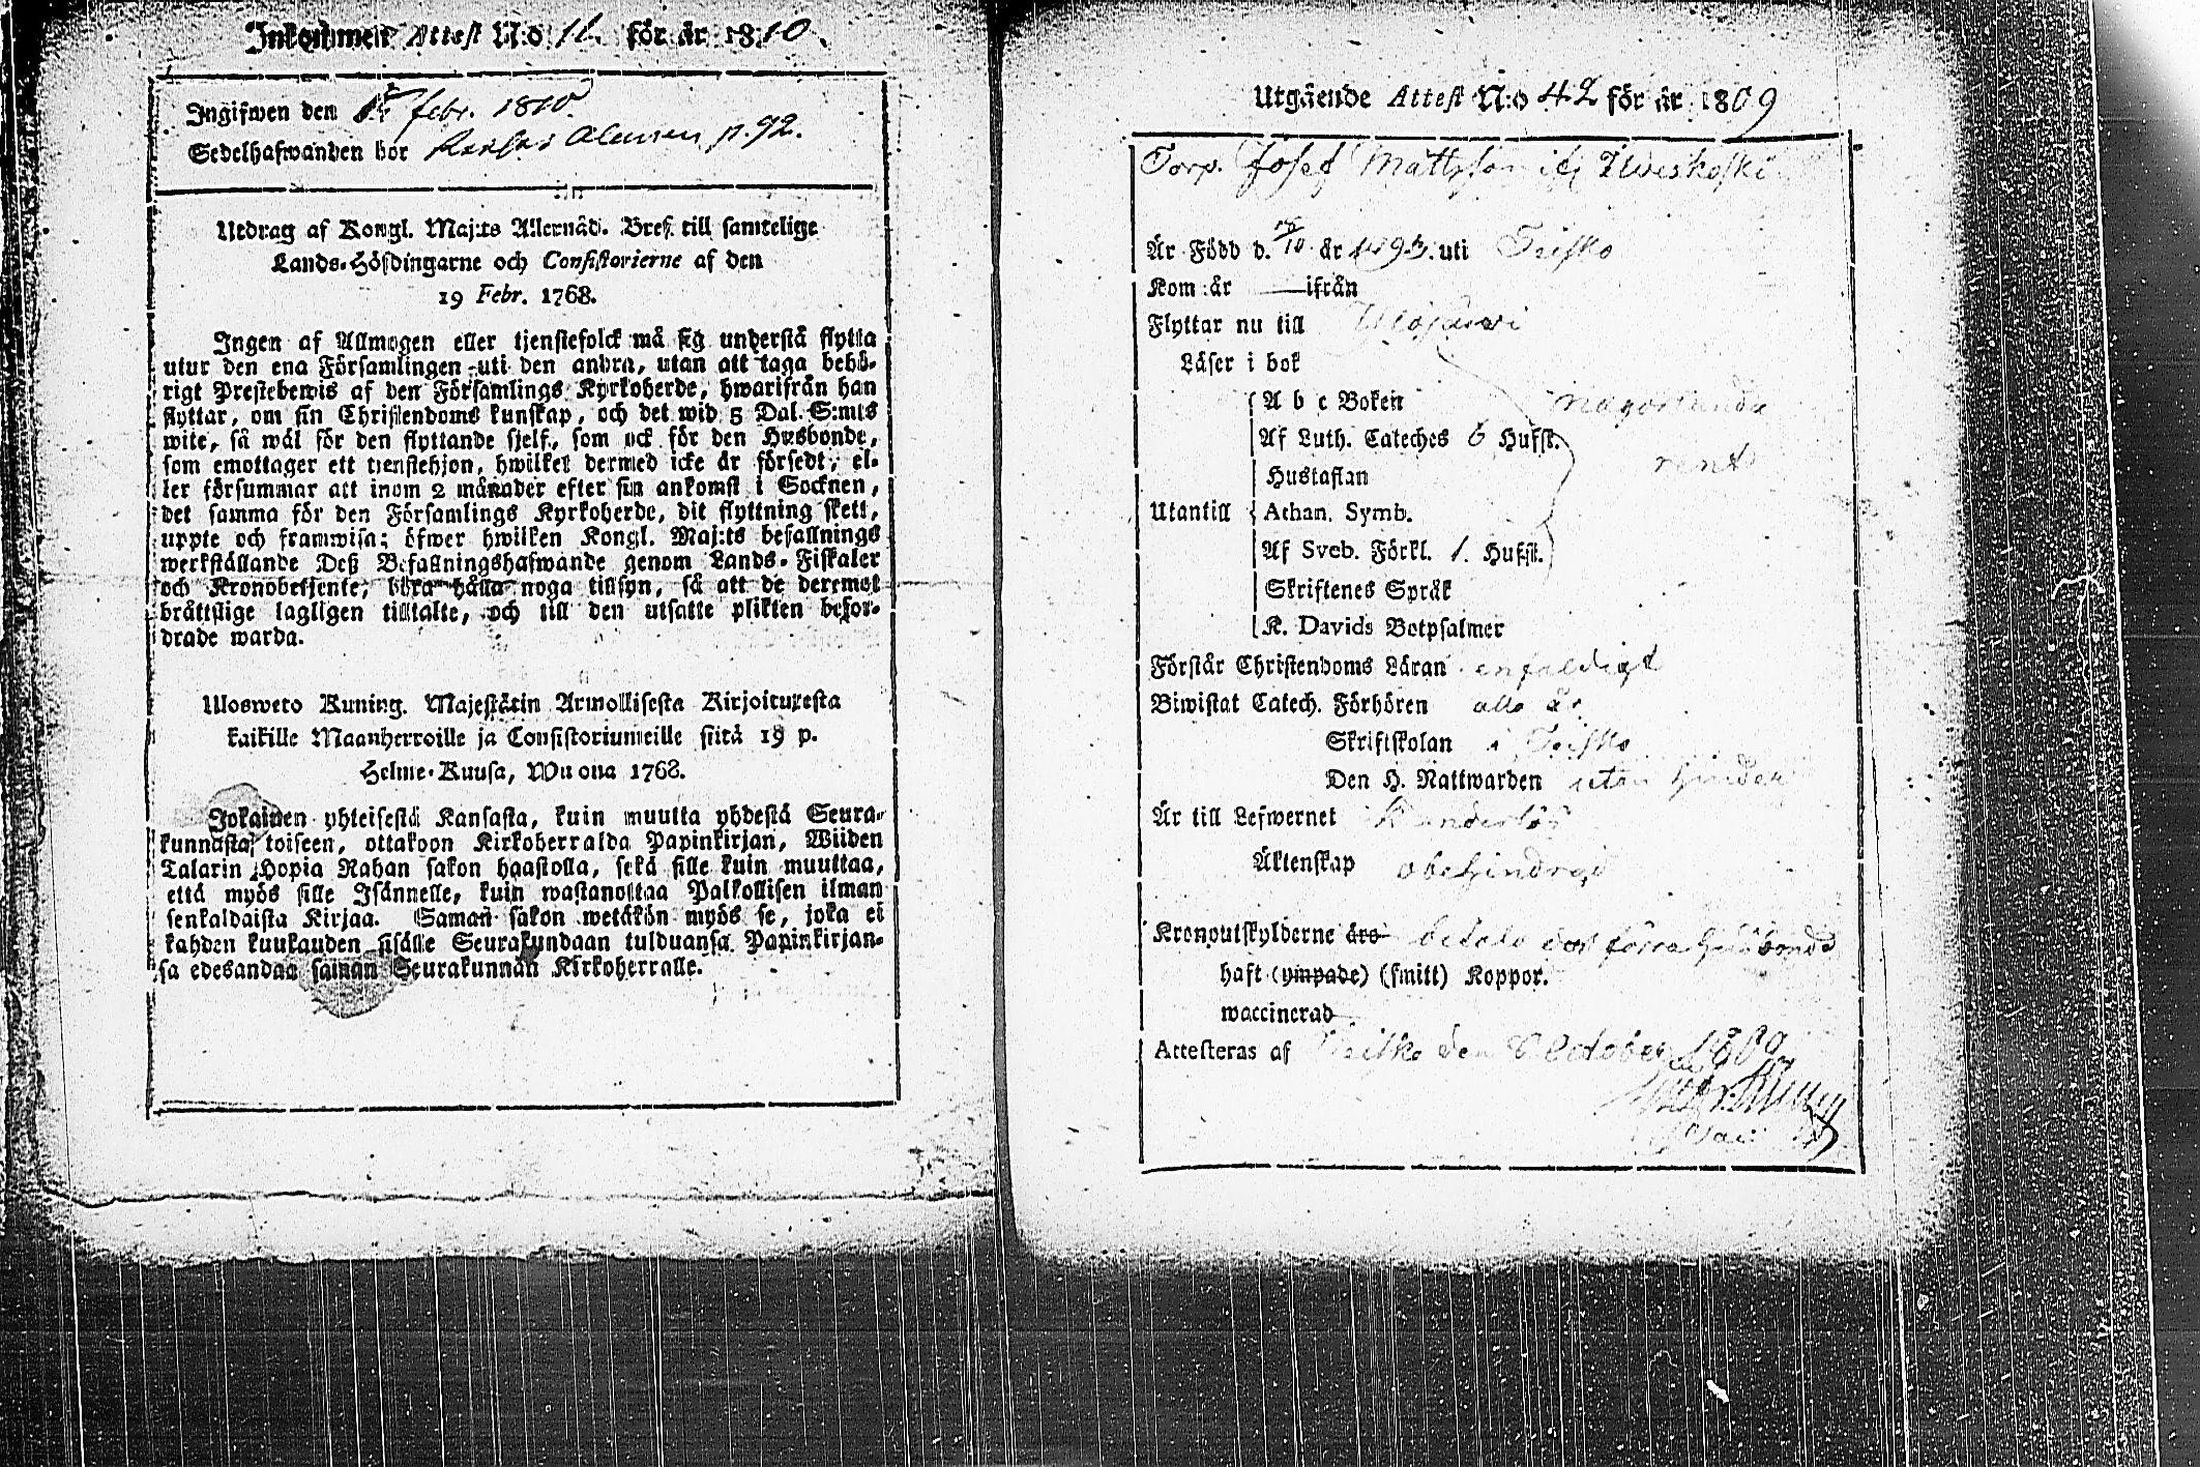 Inkommen Attest N:o 11. för år 1810.
Ingifwen den febr. 1810.
Sedelhafwanden bor p. 92.
Utdrag af Kongl. Maj:ts Allernåd. Bref till samtelige
Lands-Höfdingarne och Consistorierne af den
19 Febr. 1768.
Ingen af Allmogen eller tjenstefolck må sig understå flytta
utur den ena Församlingen uti den andra, utan att taga behö-
rigt Prestebewis af den Församlings Kyrkoherde, hwarifrån han
flyttar, om sin Christendoms kunskap, och det wid 5 Dal. S:mts
wite, så wäl för den flyttande sjelf, som ock för den Husbonde,
som emottager ett tjenstehjon, hwilket dermed icke är försedt, el-
ler försummar att inom 2 månader efter sin ankomst i Socknen,
det samma för den Församlings Kyrkoherde, dit flyttning skett,
uppte och framwisa; öfwer hwilken Kongl. Maj:ts befallnings
werkställande Deß Befallningshafwande genom Lands-Fiskaler
och Kronobetjente, böra hålla noga tillsyn, så att de deremot
bråttslige lagligen tilltalte, och till den utsatte plikten befor-
drade warda.
Ulosweto Kuning. Majestätin Armollisesta Kirjoituxesta
kaikille Maanherroille ja Consistoriumeille siitä 19 p.
Helme-Kuusa, Wuona 1768.
Jokainen yhteisestä Kansasta, kuin muutta yhdestä Seura-
kunnasta toiseen, ottakoon Kirkoherralda Papinkirjan, Wiiden
Talarin Hopia Rahan sakon haastolla, sekä sille kuin muuttaa,
että myös sille Isännelle, kuin wastanottaa Palkollisen ilman
senkaldaista Kirjaa. Saman sakon wetäkön myös se, joka ei
kahden kuukauden sisälle Seurakundaan tulduansa Papinkirjan-
sa edesandaa saman Seurakunnan Kirkoherralle.
Utgående Attest N:o 42 för år 1809
Torp. Josef Mattsson ifr
Är Född d. år uti Teisko
Kom år — ifrån
Flyttar nu till
Läser i bok
A b c Boken någorlunda
Af Luth. Cateches 6 Hufst.
rent
Hustaflan
Utantill Athan. Symb.
Af Sveb. Förkl. 1. Hufst.
Skriftenes Språk
K. Davids Botpsalmer
Förstår Christendoms Läran enfaldigt
Biwistat Catech. Förhören alla år
Skriftskolan i Teisko
Den H. Nattwarden utan hinder
Är till Lefwernet
Äktenskap obehindrad
Kronoutskylderne äro betalt förra
haft (ympade) (smitt) Koppor.
waccinerad
Attesteras af Teisko den October 1809